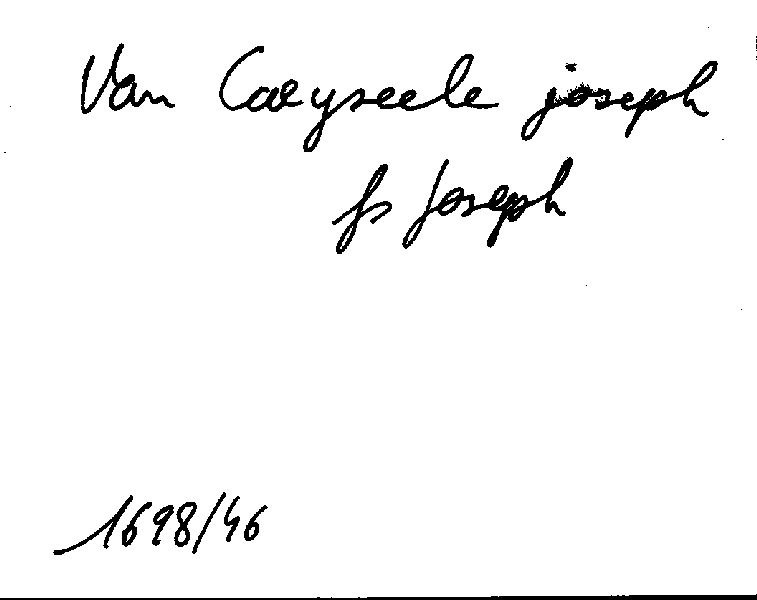 Van Caeyseele joseph
fs Joseph
1698/46